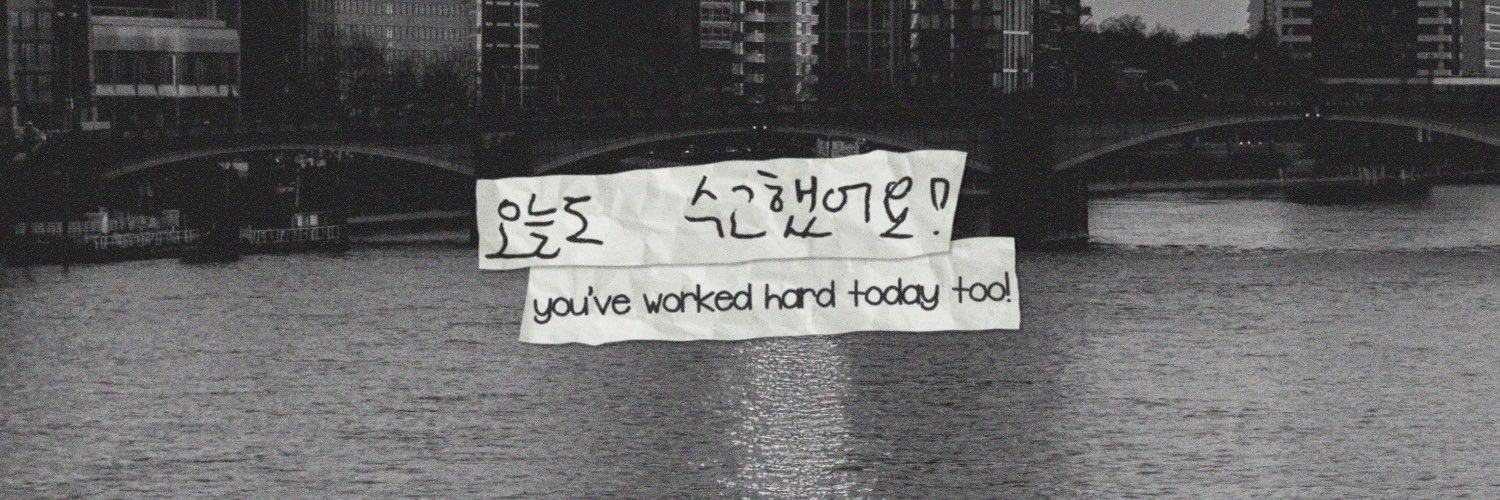 오늘도 수고했어요!
you've worked hard today too!